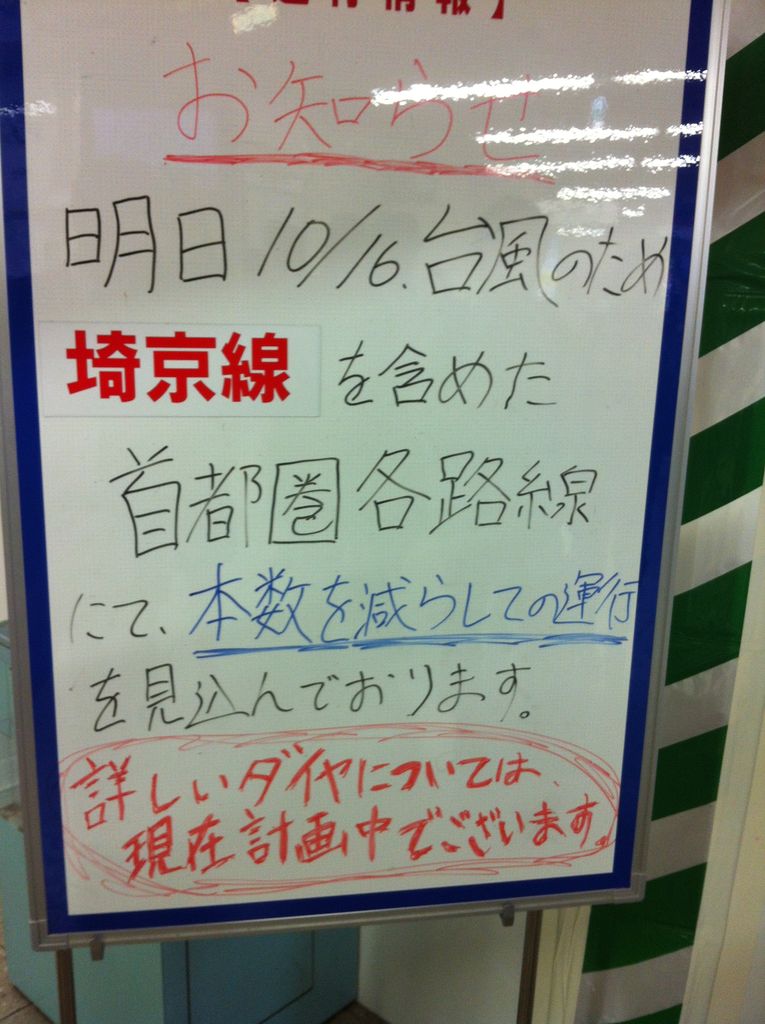 情報】
お知らせ
明日10/16.台風のため
埼京線を含めた
首都圏各路線
にて、本数を減らしての運行
を見込んでおります。
詳しいダイヤについては、
現在計画中でございます。